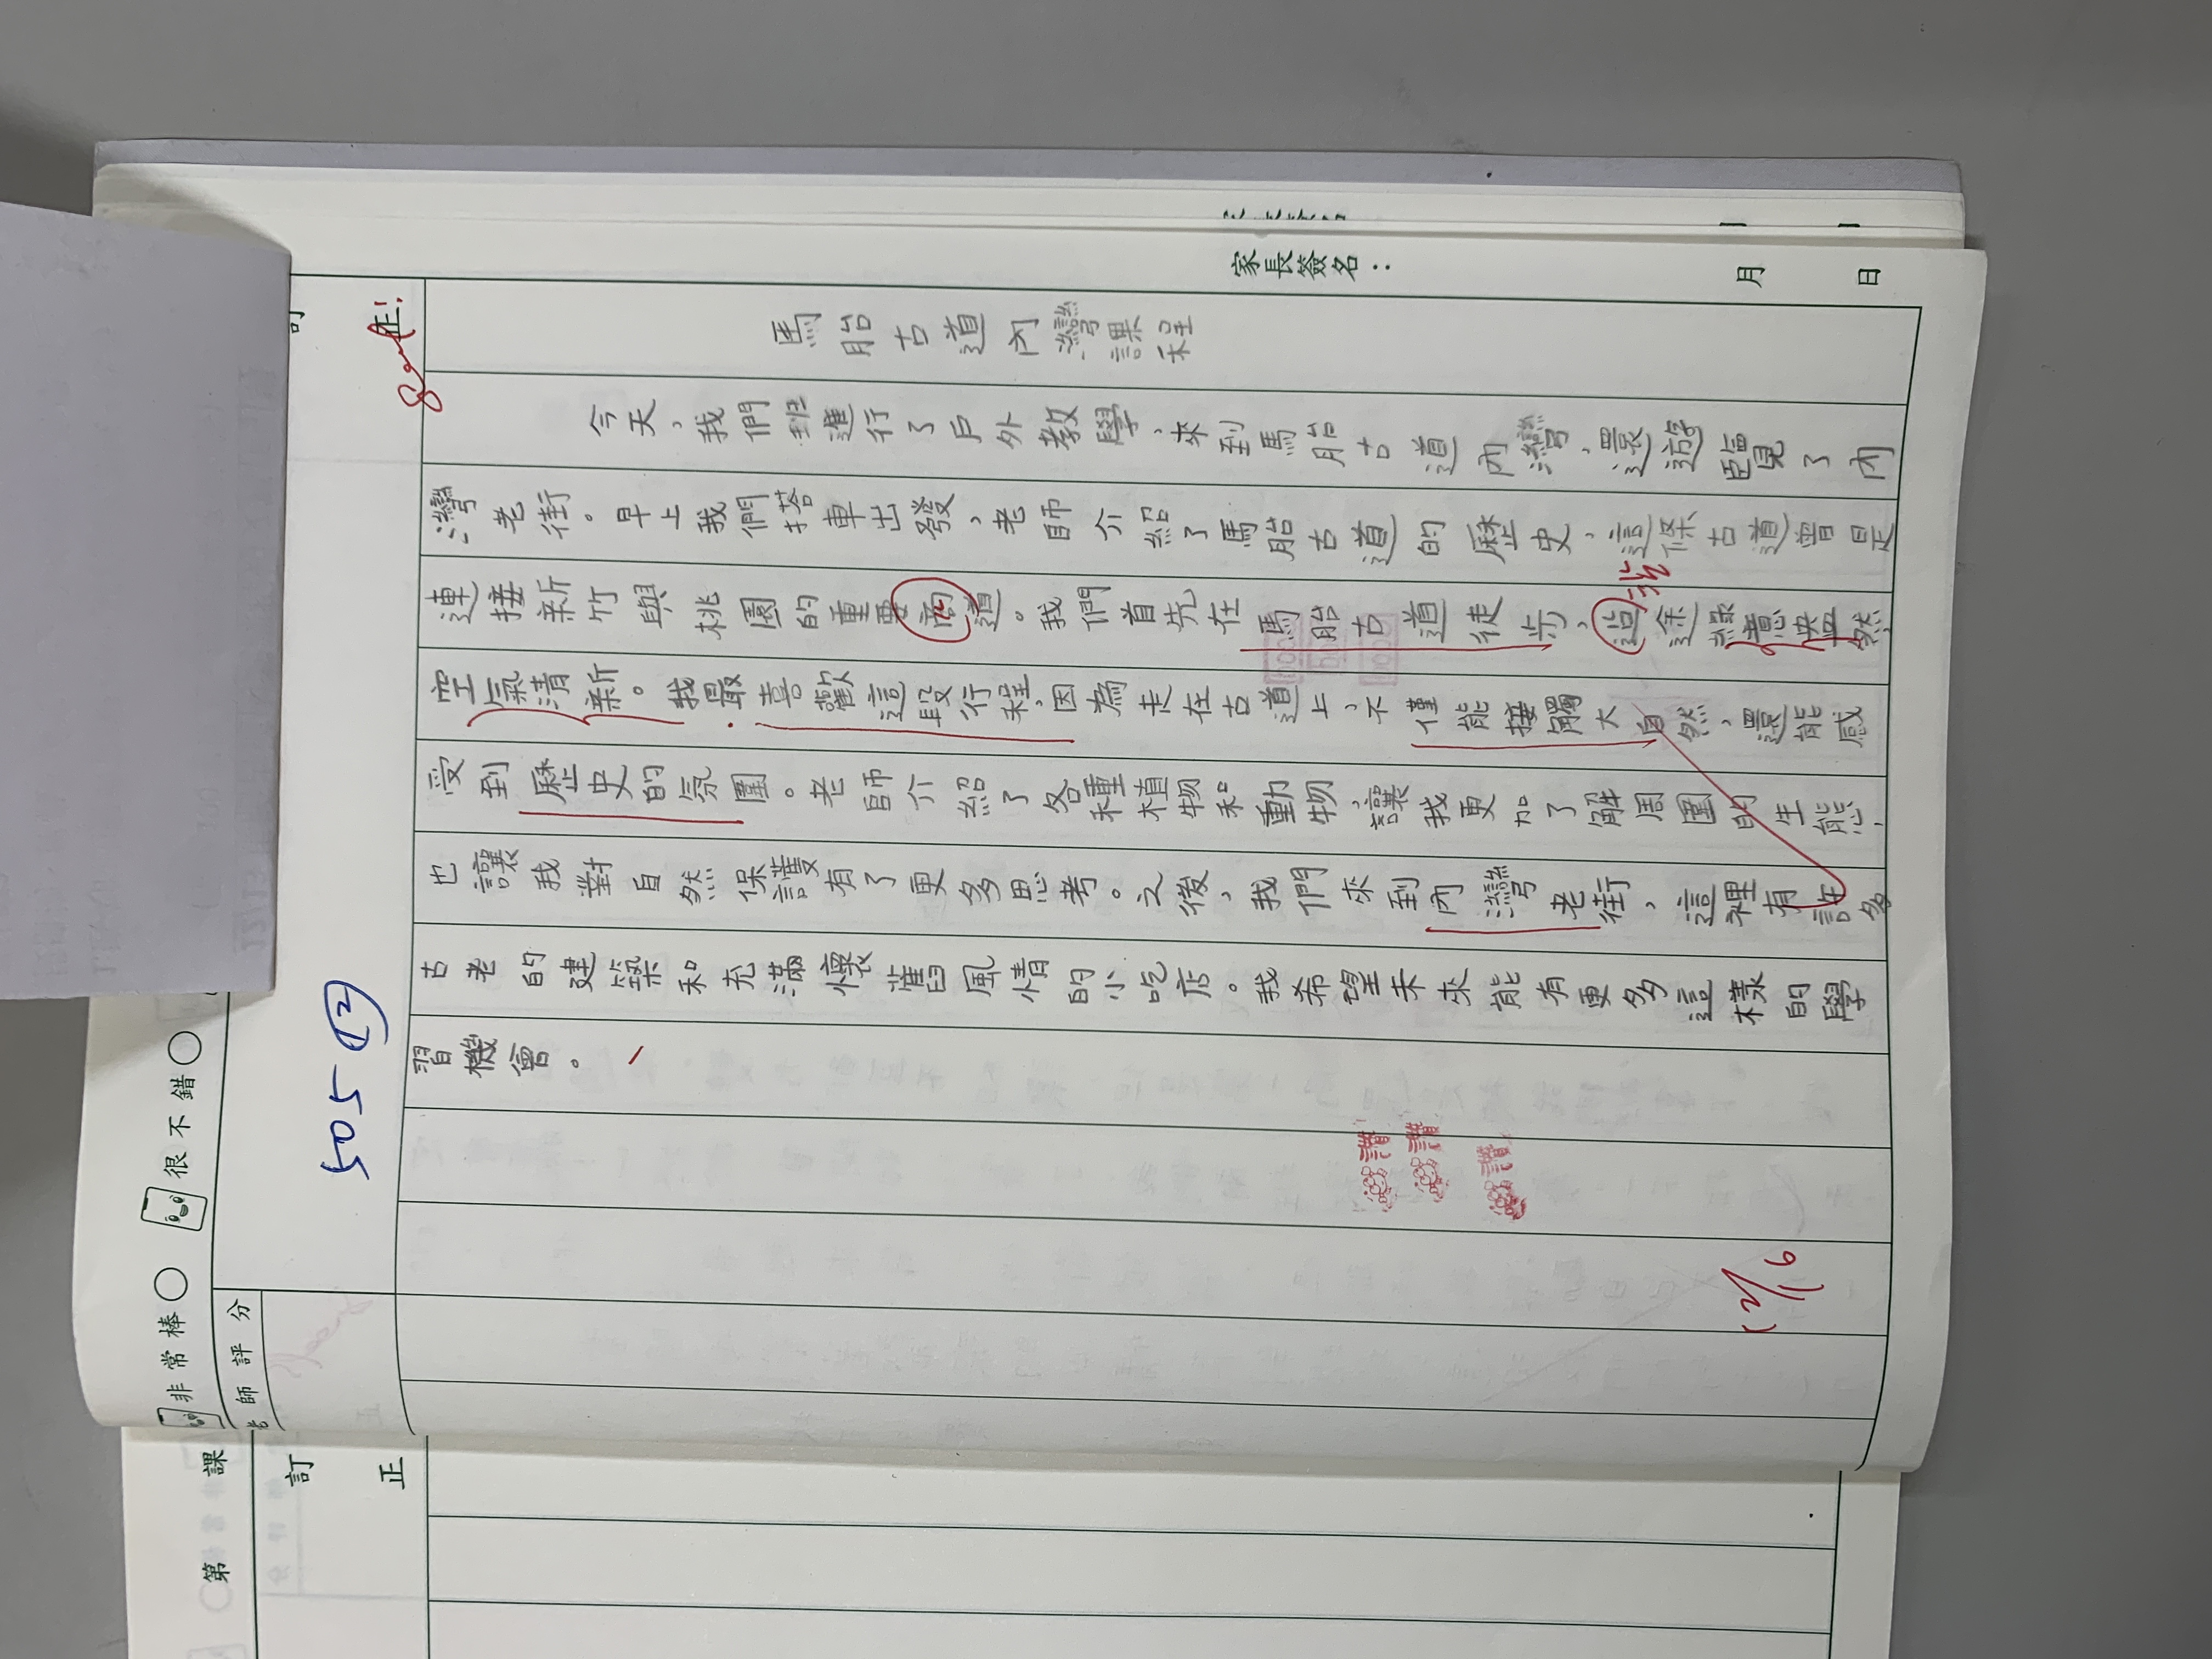 家長簽名：　月　日
馬胎古道內灣課程
今天，我們班進行了戶外教學，來到馬胎古道內灣，還遊覽了內
灣老街。早上我們搭車出發，老師介紹了馬胎古道的歷史，這條古道曾是
連接新竹與桃園的重要商道。我們首先在馬胎古道徒步，沿途綠意盎然，
空氣清新。我最喜歡這段行程，因為走在古道上，不僅能接觸大自然，還能感
受到歷史的氛圍。老師介紹了各種植物和動物，讓我更加了解周圍的生態，
也讓我對自然保護有了更多思考。之後，我們來到內灣老街，這裡有許多
古老的建築和充滿懷舊風情的小吃店。我希望未來能有更多這樣的學
習機會。
讚！
讚！
讚
12/16
訂正
Good!
505 ⑫
老師評分
非常棒○ 很不錯○
第 課
訂正